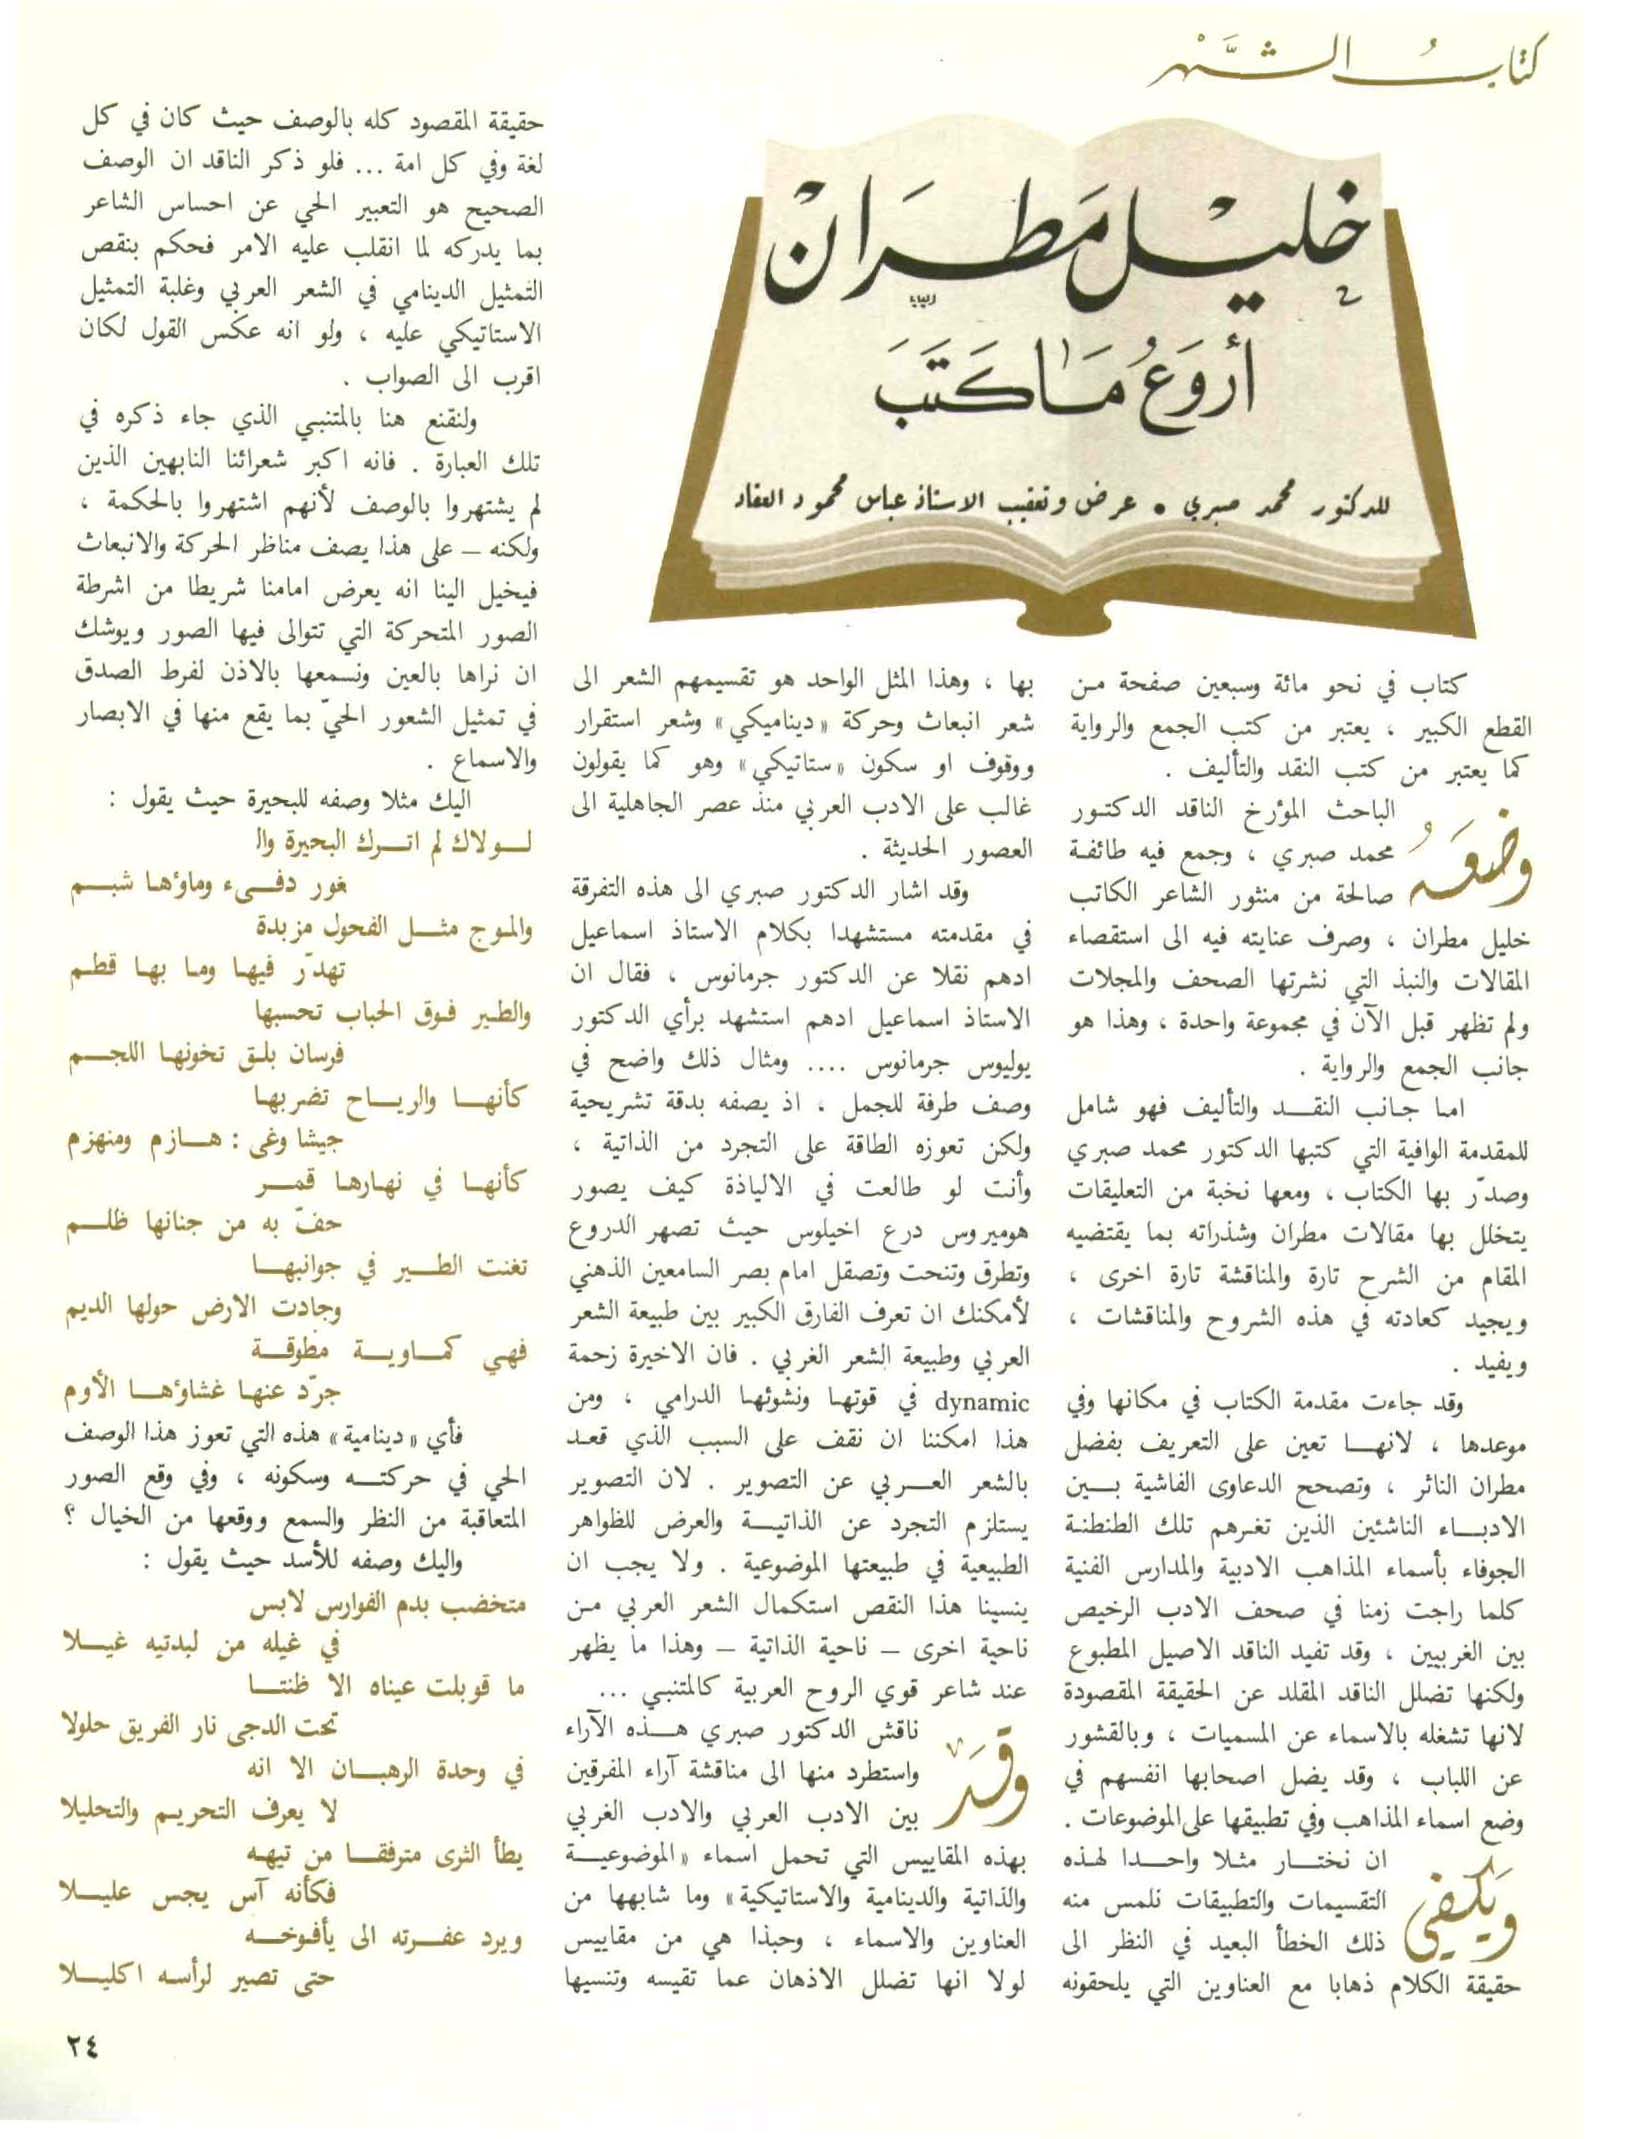 كتاب الشهر
خليل مطران
أروع ما كتب
للدكتور محمد صبري • عرض وتعقيب الاستاذ عباس محمود العقاد
كتاب في نحو مائة وسبعين صفحة من
القطع الكبير ، يعتبر من كتب الجمع والرواية
كما يعتبر من كتب النقد والتأليف .
وضعه الباحث المؤرخ الناقد الدكتور
محمد صبري ، وجمع فيه طائفة
صالحة من منثور الشاعر الكاتب
خليل مطران ، وصرف عنايته فيه الى استقصاء
المقالات والنبذ التي نشرتها الصحف والمجلات
ولم تظهر قبل الآن في مجموعة واحدة ، وهذا هو
جانب الجمع والرواية .
اما جانب النقد والتأليف فهو شامل
للمقدمة الوافية التي كتبها الدكتور محمد صبري
وصدّر بها الكتاب ، ومعها نخبة من التعليقات
يتخلل بها مقالات مطران وشذراته بما يقتضيه
المقام من الشرح تارة والمناقشة تارة اخرى ،
ويجيد كعادته في هذه الشروح والمناقشات ،
ويفيد .
وقد جاءت مقدمة الكتاب في مكانها وفي
موعدها ، لانها تعين على التعريف بفضل
مطران الناثر ، وتصحح الدعاوى الفاشية بين
الادباء الناشئين الذين تغرهم تلك الطنطنة
الجوفاء بأسماء المذاهب الادبية والمدارس الفنية
كلما راجت زمنا في صحف الادب الرخيص
بين الغربيين ، وقد تفيد الناقد الاصيل المطبوع
ولكنها تضلل الناقد المقلد عن الحقيقة المقصودة
لانها تشغله بالاسماء عن المسميات ، وبالقشور
عن اللباب ، وقد يضل اصحابها انفسهم في
وضع اسماء المذاهب وفي تطبيقها على الموضوعات .
ويكفي ان نختار مثلا واحدا لهذه
التقسيمات والتطبيقات نلمس منه
ذلك الخطأ البعيد في النظر الى
حقيقة الكلام ذهابا مع العناوين التي يلحقونه
بها ، وهذا المثل الواحد هو تقسيمهم الشعر الى
شعر انبعاث وحركة «ديناميكي» وشعر استقرار
ووقوف او سكون «ستاتيكي» وهو كما يقولون
غالب على الادب العربي منذ عصر الجاهلية الى
العصور الحديثة .
وقد اشار الدكتور صبري الى هذه التفرقة
في مقدمته مستشهدا بكلام الاستاذ اسماعيل
ادهم نقلا عن الدكتور جرمانوس ، فقال ان
الاستاذ اسماعيل ادهم استشهد برأي الدكتور
يوليوس جرمانوس .... ومثال ذلك واضح في
وصف طرفة للجمل ، اذ يصفه بدقة تشريحية
ولكن تعوزه الطاقة على التجرد من الذاتية ،
وأنت لو طالعت في الالياذة كيف يصور
هوميروس درع اخيلوس حيث تصهر الدروع
وتطرق وتنحت وتصقل امام بصر السامعين الذهني
لأمكنك ان تعرف الفارق الكبير بين طبيعة الشعر
العربي وطبيعة الشعر الغربي . فان الاخيرة زحمة
dynamic في قوتها ونشوئها الدرامي ، ومن
هذا امكننا ان نقف على السبب الذي قعد
بالشعر العربي عن التصوير . لان التصوير
يستلزم التجرد عن الذاتية والعرض للظواهر
الطبيعية في طبيعتها الموضوعية . ولا يجب ان
ينسينا هذا النقص استكمال الشعر العربي من
ناحية اخرى - ناحية الذاتية - وهذا ما يظهر
عند شاعر قوي الروح العربية كالمتنبي ...
وقد ناقش الدكتور صبري هذه الآراء
واستطرد منها الى مناقشة آراء المفرقين
بين الادب العربي والادب الغربي
بهذه المقاييس التي تحمل اسماء «الموضوعية
والذاتية والدينامية والاستاتيكية» وما شابهها من
العناوين والاسماء ، وحبذا هي من مقاييس
لولا انها تضلل الاذهان عما تقيسه وتنسيها
حقيقة المقصود كله بالوصف حيث كان في كل
لغة وفي كل امة ... فلو ذكر الناقد ان الوصف
الصحيح هو التعبير الحي عن احساس الشاعر
بما يدركه لما انقلب عليه الامر فحكم بنقص
التمثيل الدينامي في الشعر العربي وغلبة التمثيل
الاستاتيكي عليه ، ولو انه عكس القول لكان
اقرب الى الصواب .
ولنقنع هنا بالمتنبي الذي جاء ذكره في
تلك العبارة . فانه اكبر شعرائنا النابهين الذين
لم يشتهروا بالوصف لأنهم اشتهروا بالحكمة ،
ولكنه - على هذا يصف مناظر الحركة والانبعاث
فيخيل الينا انه يعرض امامنا شريطا من اشرطة
الصور المتحركة التي تتوالى فيها الصور ويوشك
ان نراها بالعين ونسمعها بالاذن لفرط الصدق
في تمثيل الشعور الحيّ بما يقع منها في الابصار
والاسماع .
اليك مثلا وصفه للبحيرة حيث يقول :
لولاك لم اترك البحيرة وال
غور دفيء وماؤها شبم
والموج مثل الفحول مزبدة
تهدّر فيها وما بها قطم
والطير فوق الحباب تحسبها
فرسان بلق تخونها اللجم
كأنها والرياح تضربها
جيشا وغى : هازم ومنهزم
كأنها في نهارها قمر
حفّ به من جنانها ظلم
تغنت الطير في جوانبها
وجادت الارض حولها الديم
فهي كماوية مطوقة
جرّد عنها غشاؤها الأوم
فأي «دينامية» هذه التي تعوز هذا الوصف
الحي في حركته وسكونه ، وفي وقع الصور
المتعاقبة من النظر والسمع ووقعها من الخيال ؟
واليك وصفه للأسد حيث يقول :
متخضب بدم الفوارس لابس
في غيله من لبدتيه غيلا
ما قوبلت عيناه الا ظنتا
تحت الدجى نار الفريق حلولا
في وحدة الرهبان الا انه
لا يعرف التحريم والتحليلا
يطأ الثرى مترفقا من تيهه
فكأنه آس يجس عليلا
ويرد عفرته الى يأفوخه
حتى تصير لرأسه اكليلا
٢٤